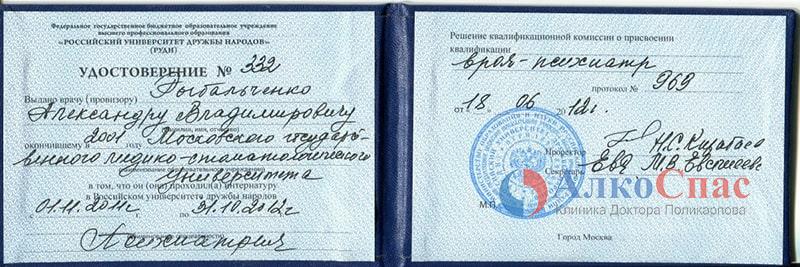 Федеральное государственное бюджетное образовательное учреждение
высшего профессионального образования
«РОССИЙСКИЙ УНИВЕРСИТЕТ ДРУЖБЫ НАРОДОВ»
(РУДН)
УДОСТОВЕРЕНИЕ № 332
Выдано врачу (провизору) Рыбальченко
Александру Владимировичу
(фамилия, имя, отчество)
окончившему в 2001 Московского государст-
венного медико-стоматологического
(наименование образовательного учреждения)
Университета
в том, что он (она) проходил(а) интернатуру
в Российском университете дружбы народов
с 01.11.2011г. по 31.10.2012г
Психиатрия
Решение квалификационной комиссии о присвоении
квалификации
врач-психиатр
протокол № 969
от «18» 06 2012г.
Проректор
Секретарь
М.П.
АлкоСпас
Клиника Доктора Поликарпова
Город Москва